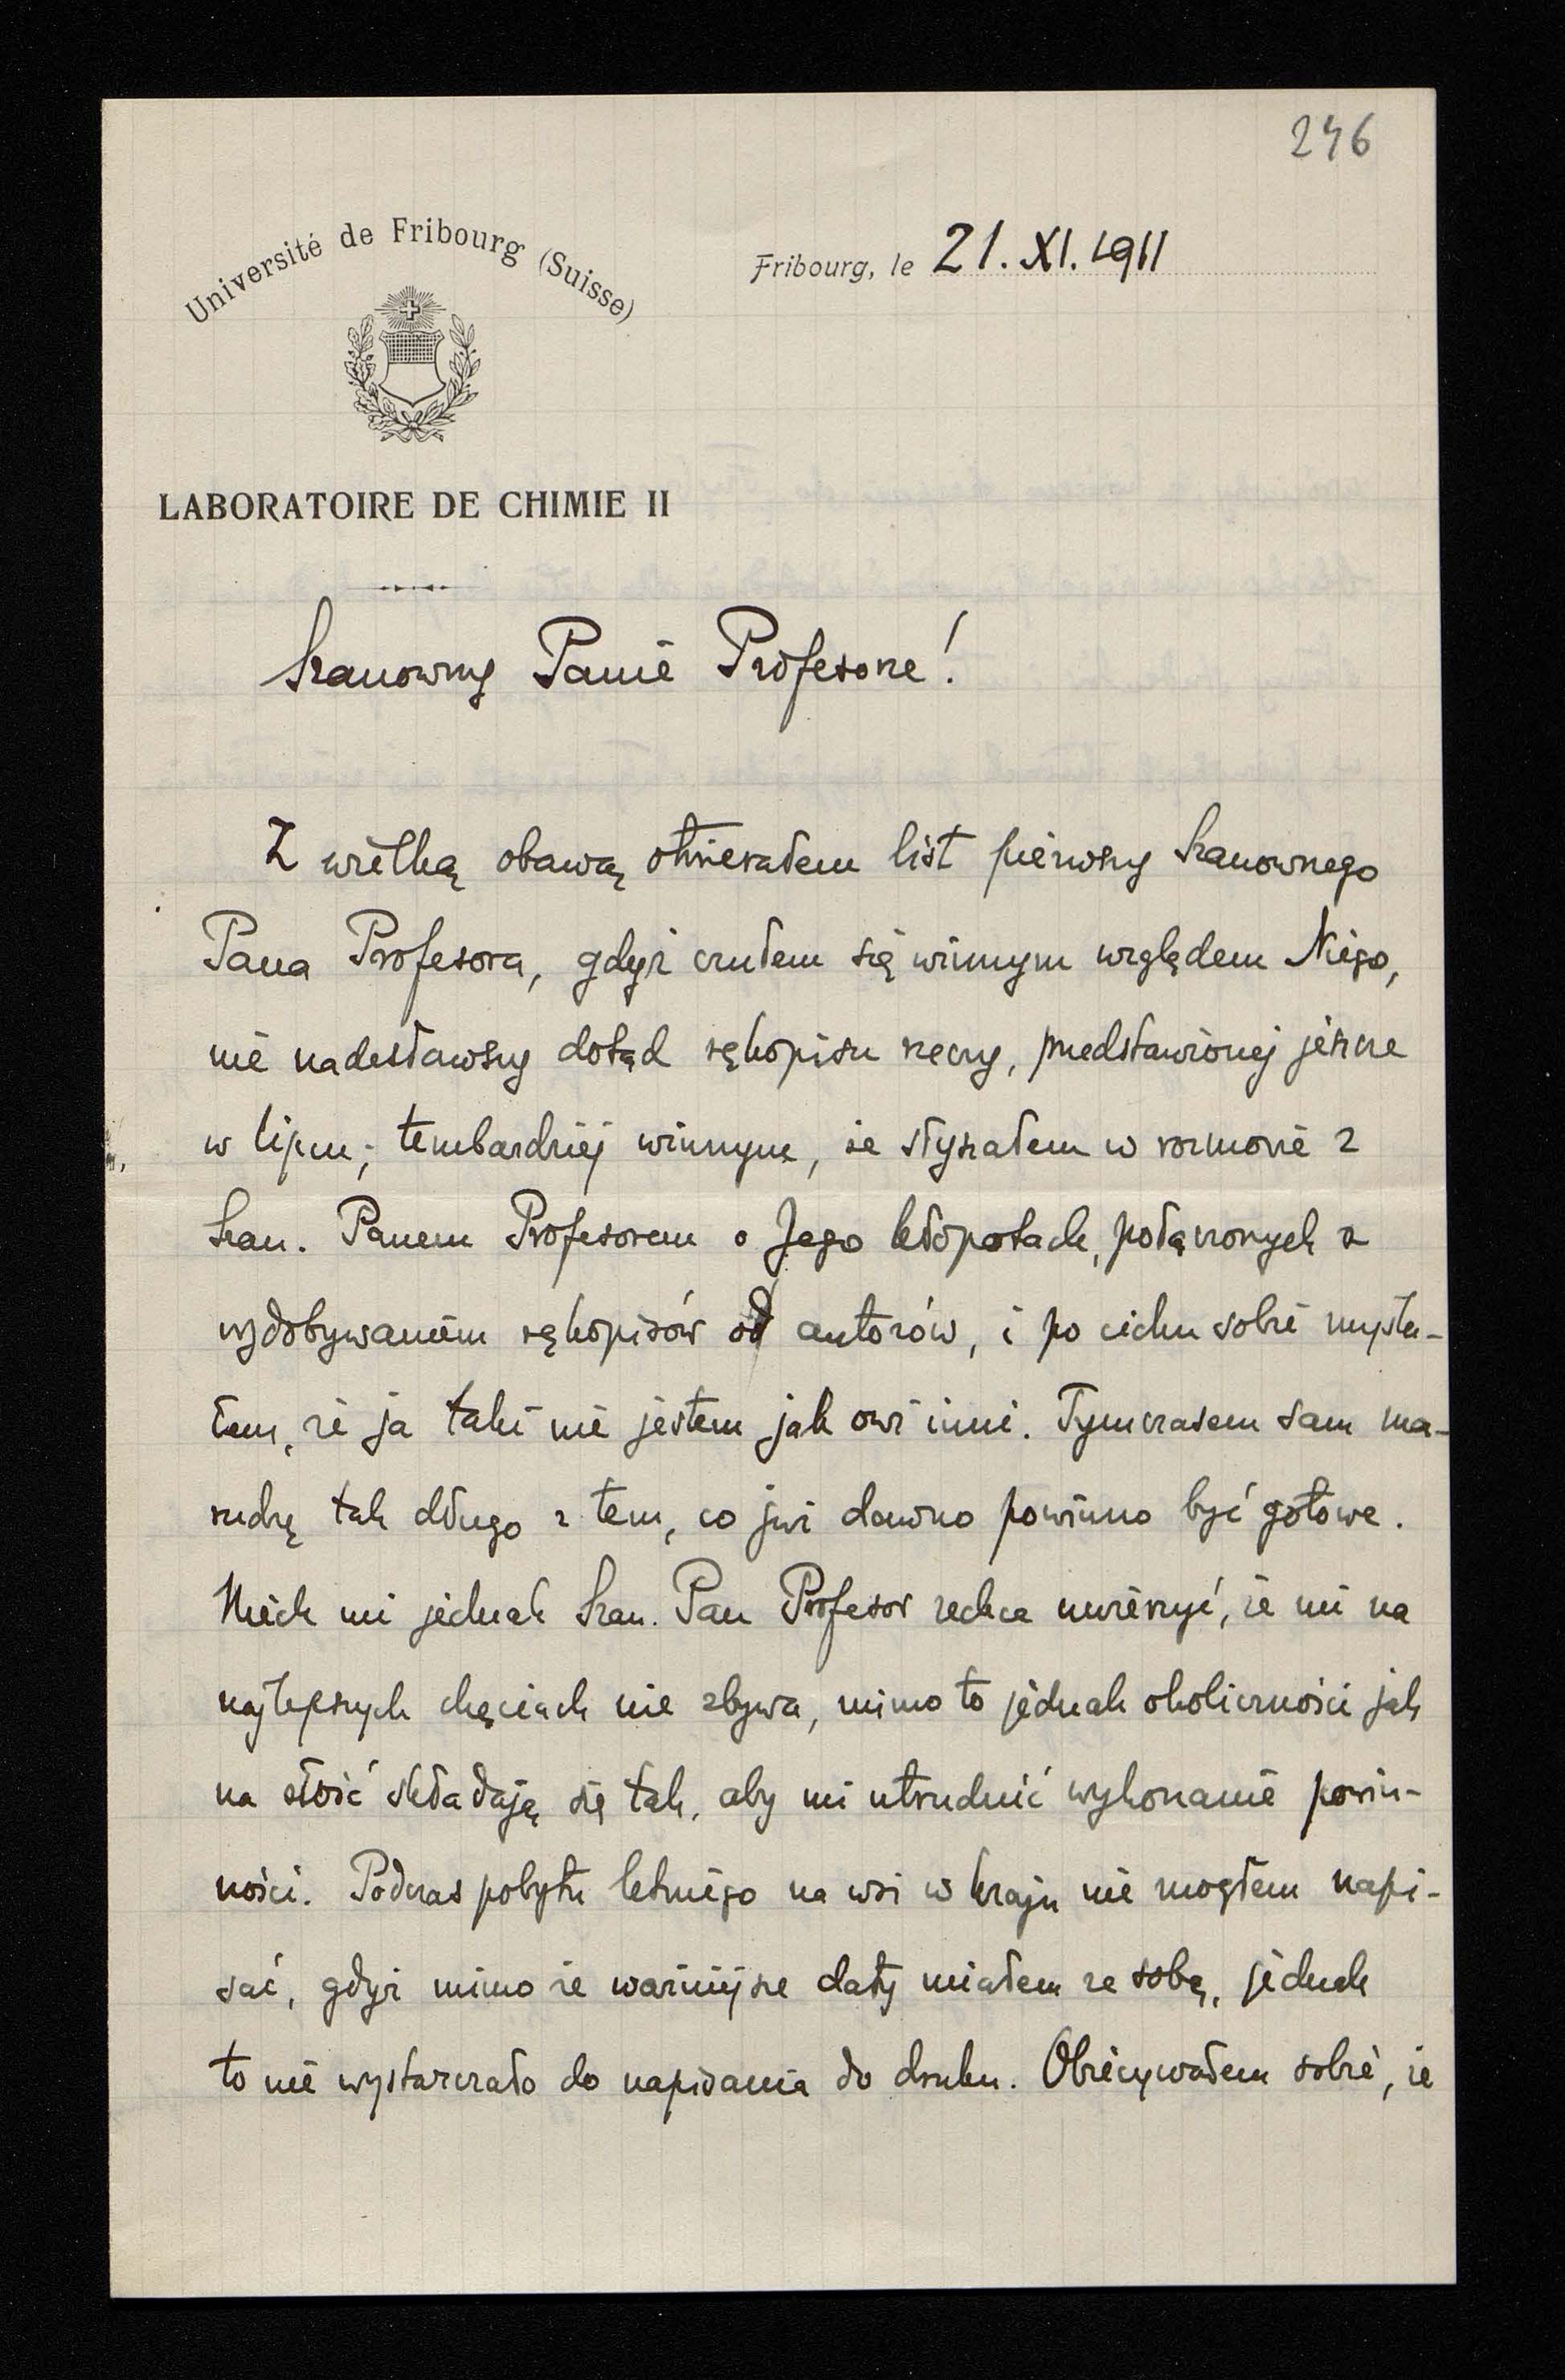 246
Université de Fribourg (Suisse)
Fribourg, le 21. XI. 1911
LABORATOIRE DE CHIMIE II
Szanowny Panie Profesorze!
Z wielką obawą otwierałem list pierwszy Szanownego
Pana Profesora, gdyż czułem się winnym względem Niego,
nie nadesławszy dotąd rękopisu rzeczy, przedstawionej jeszcze
w lipcu; tembardziej winnym, że słyszałem w rozmowie z
Szan. Panem Profesorem o Jego kłopotach, połączonych z
wydobywaniem rękopisów od autorów, i po cichu sobie myśla-
łem, że ja taki nie jestem jak owi inni. Tymczasem sam ma-
rudzę tak długo z tem, co już dawno powinno być gotowe.
Niech mi jednak Szan. Pan Profesor zechce uwierzyć, że mi na
najlepszych chęciach nie zbywa, mimo to jednak okoliczności jak
na złość składają się tak, aby mi utrudnić wykonanie powin-
ności. Podczas pobytu letniego na wsi w kraju nie mogłem napi-
sać, gdyż mimo że ważniejsze daty miałem ze sobą, jednak
to nie wystarczało do napisania do druku. Obiecywałem sobie, że